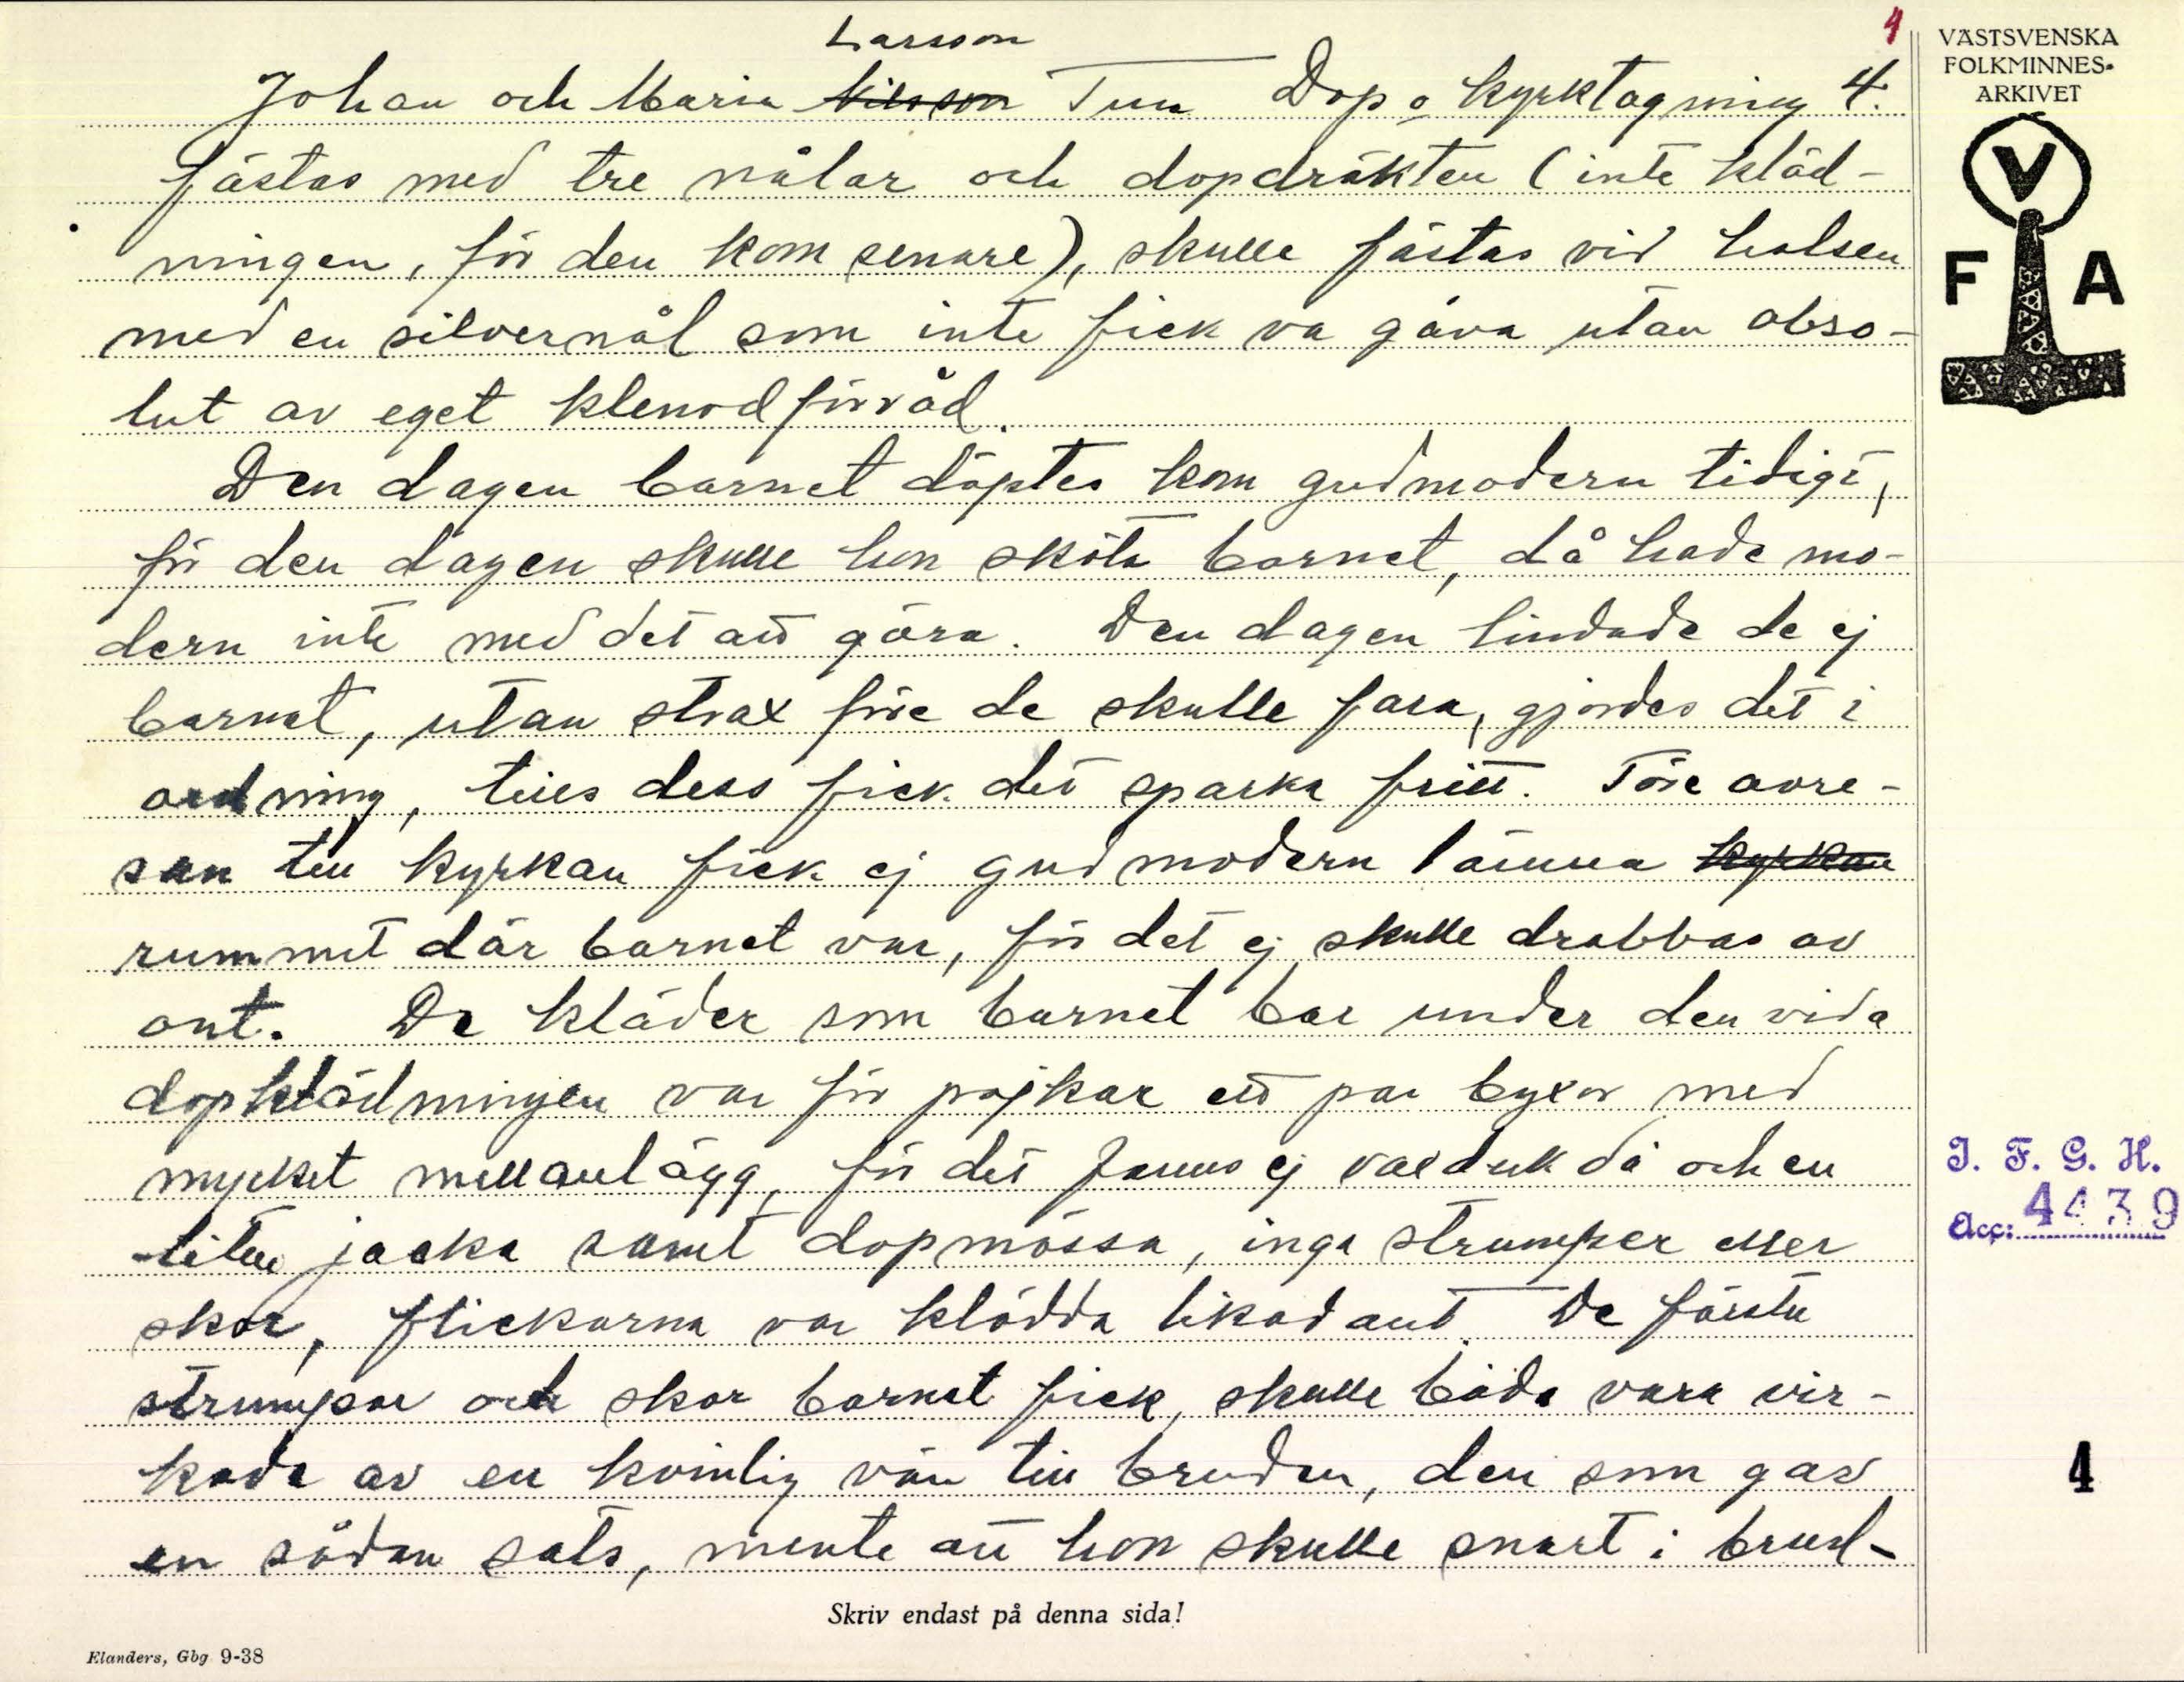 4
Larsson
Johan och Maria Nilsson Tun Dop o kyrktagning 4.
fästas med tre nålar och dopdräkten (inte kläd-
ningen, för den kom senare), skulle fästas vid halsen
med en silvernål som inte fick va gåva utan abso-
lut av eget klenodförråd.
Den dagen barnet döptes kom gudmodern tidigt,
för den dagen skulle hon sköta barnet, då hade mo-
dern inte med det att göra. Den dagen lindade de ej
barnet, utan strax före de skulle fara, gjordes det i
ordning, tills dess fick det sparka fritt. Före avre-
san till kyrkan fick ej gudmodern lämna kyrkan
rummet där barnet var, för det ej skulle drabbas av
ont. De kläder som barnet bar under den vida
dopklädningen var för pojkar ett par byxor med
mycket mellanlägg, för det fanns ej vaxduk då och en
liten jacka samt dopmössa, inga strumper eller
skor, flickorna var klädda likadant. De första
strumpor och skor barnet fick, skulle båda vara vir-
kade av en kvinlig vän till bruden, den som gav
en sådan sats, mente att hon skulle snart i brud-
Skriv endast på denna sida!
Elanders, Gbg 9-38
VÄSTSVENSKA
FOLKMINNES-
ARKIVET
V
F A
I. F. G. H.
Acc: 4439
4